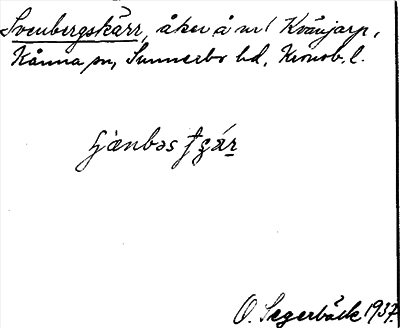 Svenbergskärr, åker å nr 1 Kvänjarp,
Kånna sn, Sunnerbo hd, Kronob. l.
O. Segerbäck 1937.